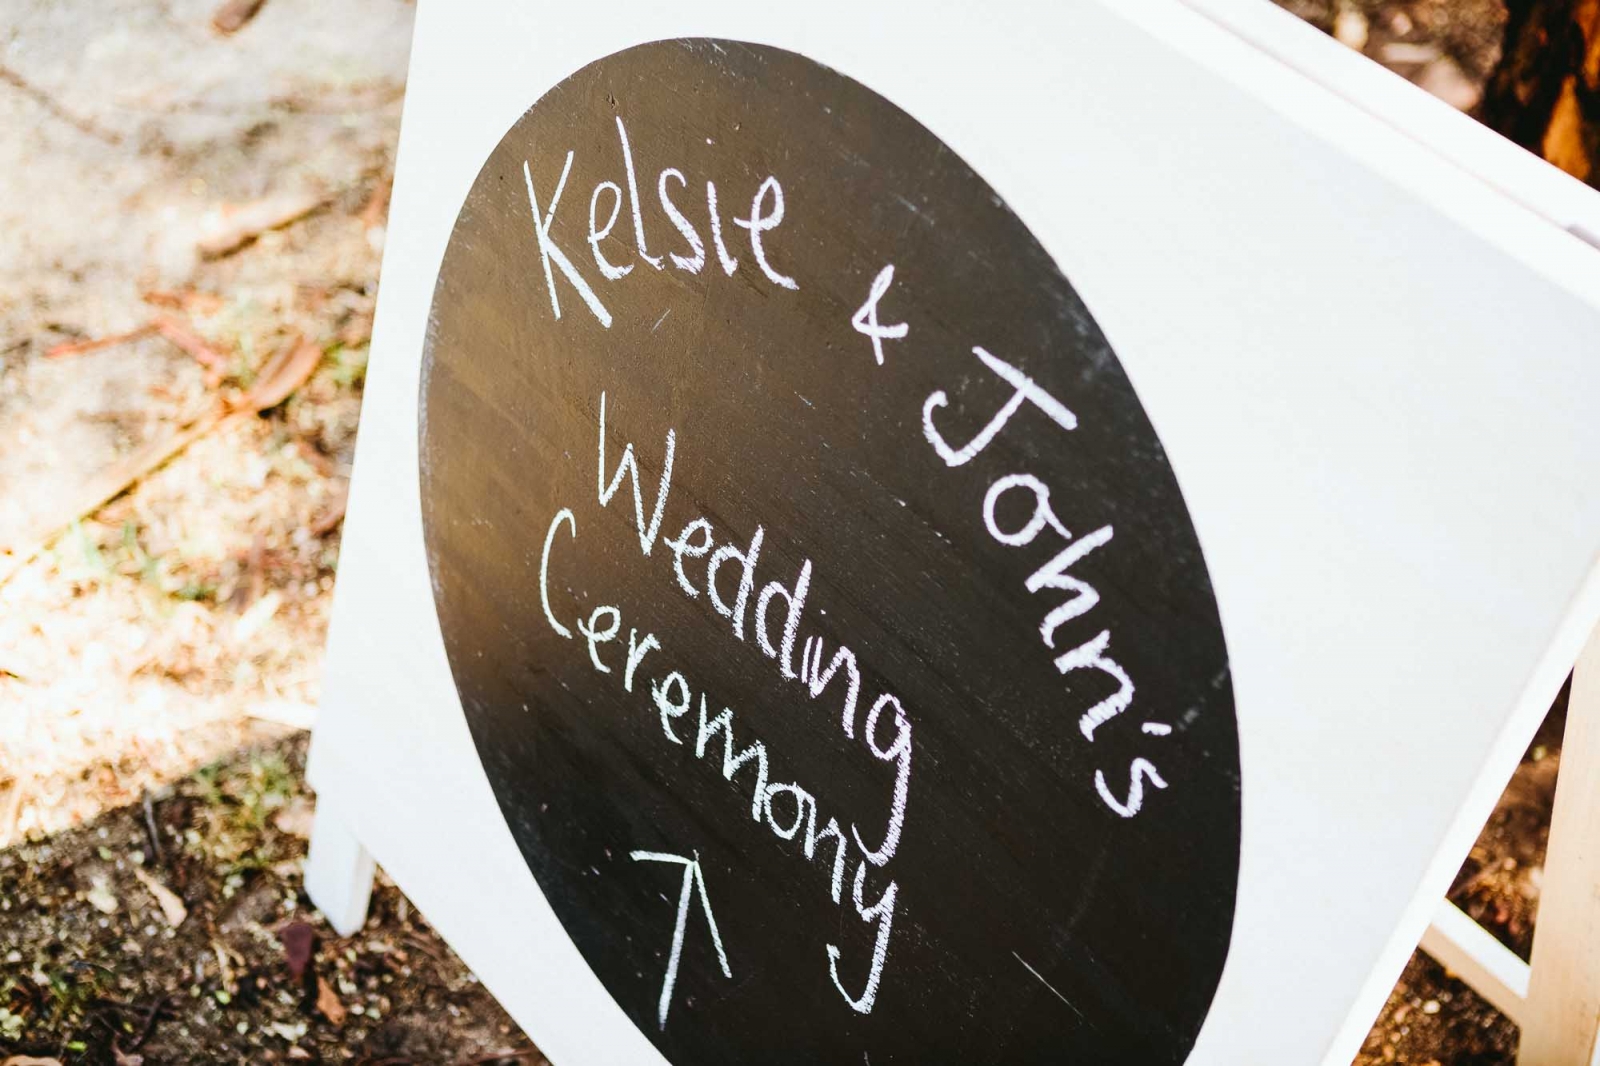 Kelsie & John's
Wedding
Ceremony